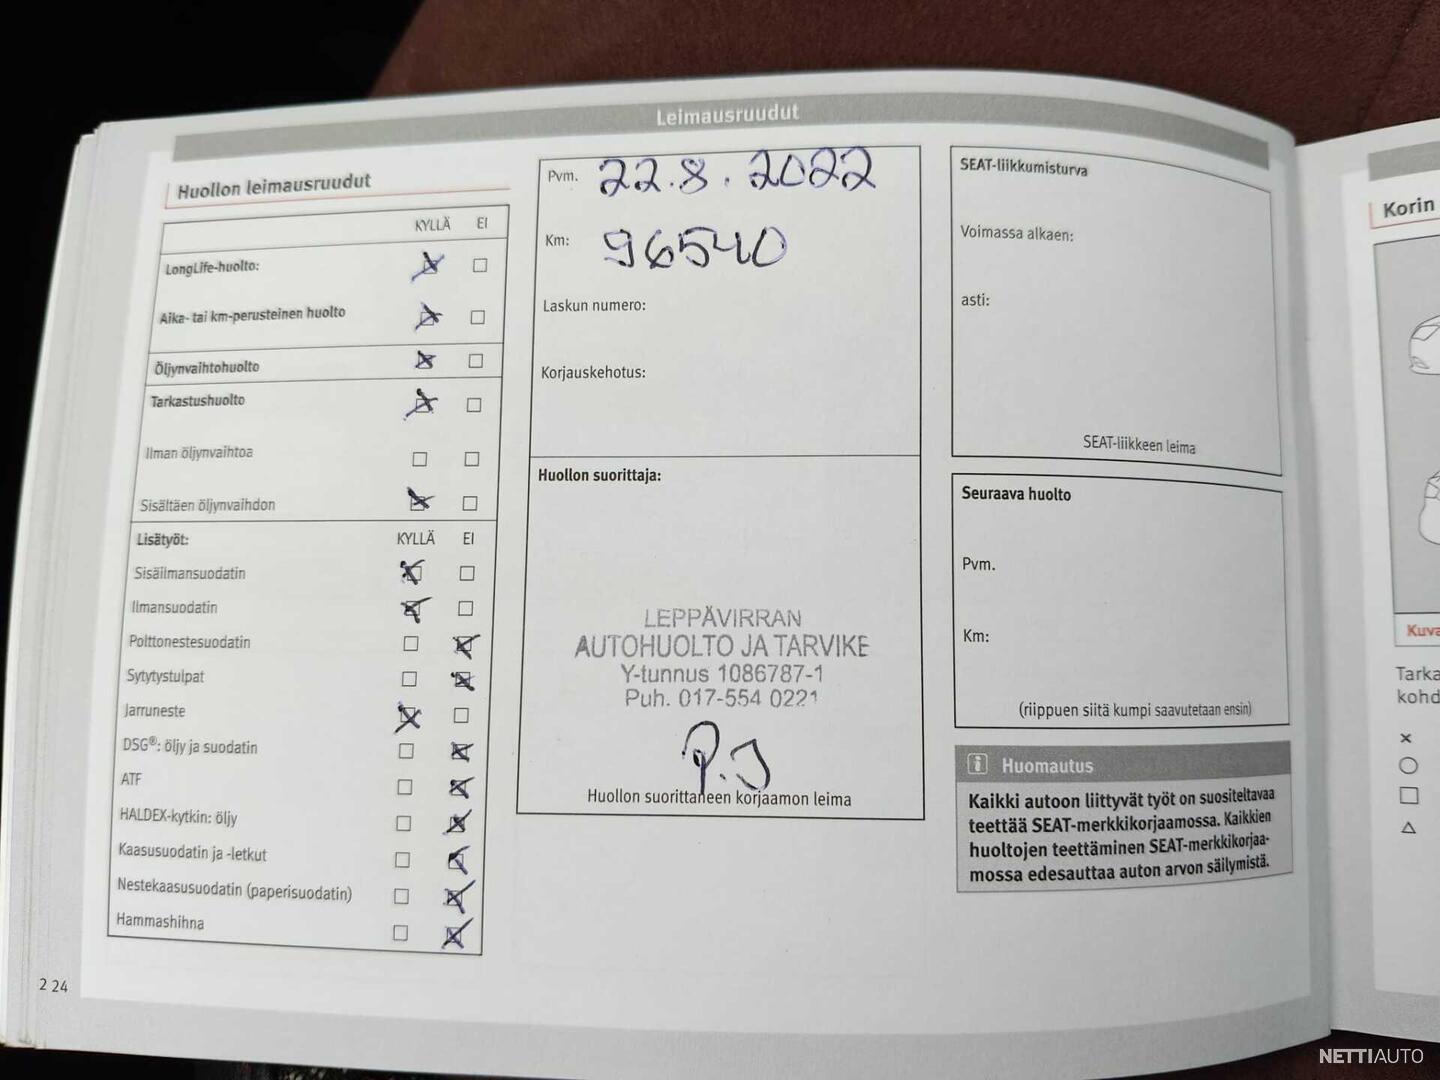 Leimausruudut
Huollon leimausruudut
KYLLÄ EI
LongLife-huolto:
Aika- tai km-perusteinen huolto
Öljynvaihtohuolto
Tarkastushuolto
Ilman öljynvaihtoa
Sisältäen öljynvaihdon
Lisätyöt: KYLLÄ EI
Sisäilmansuodatin
Ilmansuodatin
Polttonestesuodatin
Sytytystulpat
Jarruneste
DSG®: öljy ja suodatin
ATF
HALDEX-kytkin: öljy
Kaasusuodatin ja -letkut
Nestekaasusuodatin (paperisuodatin)
Hammashihna
2 24
Pvm. 22.8.2022
Km: 96540
Laskun numero:
Korjauskehotus:
Huollon suorittaja:
LEPPÄVIRRAN
AUTOHUOLTO JA TARVIKE
Y-tunnus 1086787-1
Puh. 017-554 0221
P.J
Huollon suorittaneen korjaamon leima
SEAT-liikkumisturva
Voimassa alkaen:
asti:
SEAT-liikkeen leima
Seuraava huolto
Pvm.
Km:
(riippuen siitä kumpi saavutetaan ensin)
i Huomautus
Kaikki autoon liittyvät työt on suositeltavaa
teettää SEAT-merkkikorjaamossa. Kaikkien
huoltojen teettäminen SEAT-merkkikorjaa-
mossa edesauttaa auton arvon säilymistä.
Korin
Kuva
Tarka
kohd
NETTIAUTO